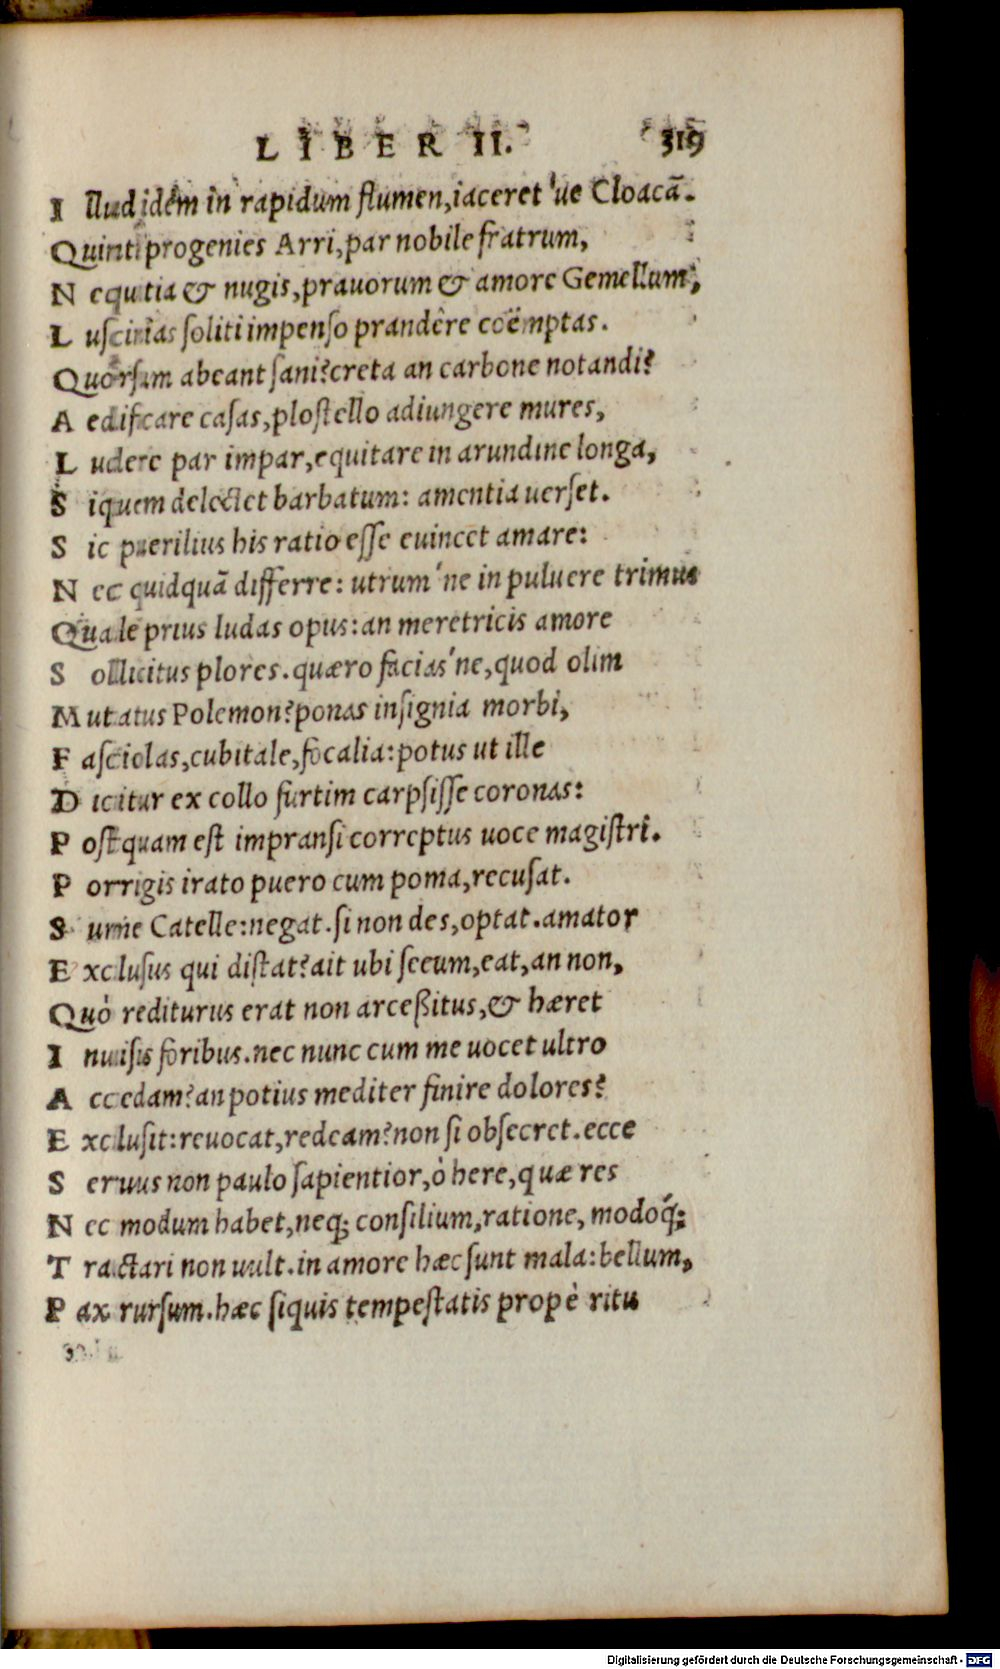 LIBER II. 319
Illud idem in rapidum flumen, iaceret 've Cloacã.
Quinti progenies Arri, par nobile fratrum,
Nequitia & nugis, prauorum & amore Gemellum,
Luscinias soliti impenso prandêre coëmptas.
Quorsum abeant sani? creta an carbone notandi?
Aedificare casas, plostello adiungere mures,
Ludere par impar, equitare in arundine longa,
Siquem delectet barbatum: amentia uerset.
Sic puerilius his ratio esse euincet amare:
Nec quidquã differre: utrum'ne in puluere trimus
Quale prius ludas opus: an meretricis amore
Sollicitus plores. quæro facias'ne, quod olim
Mutatus Polemon? ponas insignia morbi,
Fasciolas, cubitale, focalia: potus ut ille
Dicitur ex collo furtim carpsisse coronas:
Postquam est impransi correptus uoce magistri.
Porrigis irato puero cum poma, recusat.
Sume Catelle: negat. si non des, optat. amator
Exclusus qui distat? ait ubi secum, eat, an non,
Quò rediturus erat non arceßitus, & hæret
Inuisis foribus. nec nunc cum me uocet ultro
Accedam? an potius mediter finire dolores?
Exclusit: reuocat, redeam? non si obsecret. ecce
Seruus non paulo sapientior, ò here, quæ res
Nec modum habet, neq; consilium, ratione, modoq́;
Tractari non uult. in amore hæc sunt mala: bellum,
Pax rursum. hæc siquis tempestatis propè ritu
Digitalisierung gefördert durch die Deutsche Forschungsgemeinschaft - DFG